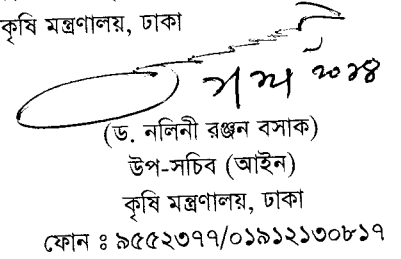 কৃষি মন্ত্রণালয়, ঢাকা
২০১৪
(ড. নলিনী রঞ্জন বসাক)
উপ-সচিব (আইন)
কৃষি মন্ত্রণালয়, ঢাকা
ফোন ঃ ৯৫৫২৩৭৭/০১৯১২১৩০৮১৭